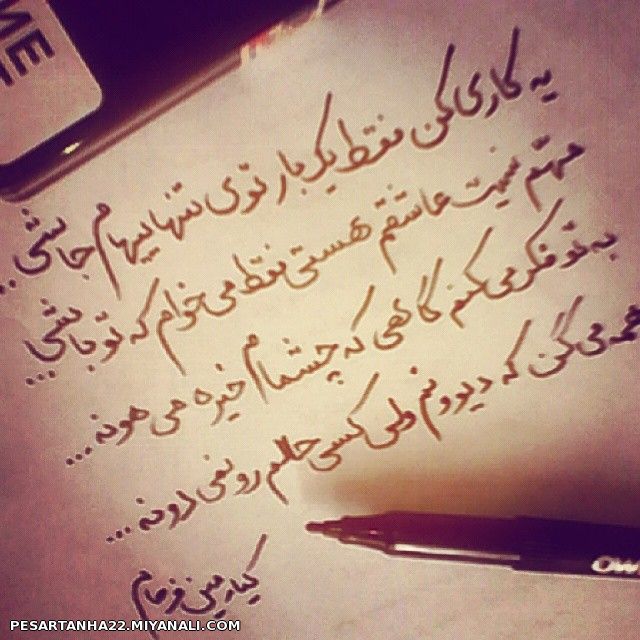 یه کاری کن فقط یک بار توی تنهاییهام جا شی..
مهم نیست عاشقم هستی فقط می خوام که تو باشی...
به تو فکر می کنم گاهی که چشمام خیره می مونه...
همه می گن که دیوونم ولی کسی حالم رو نمی دونه...
ME
PESARTANHA22.MIYANALI.COM